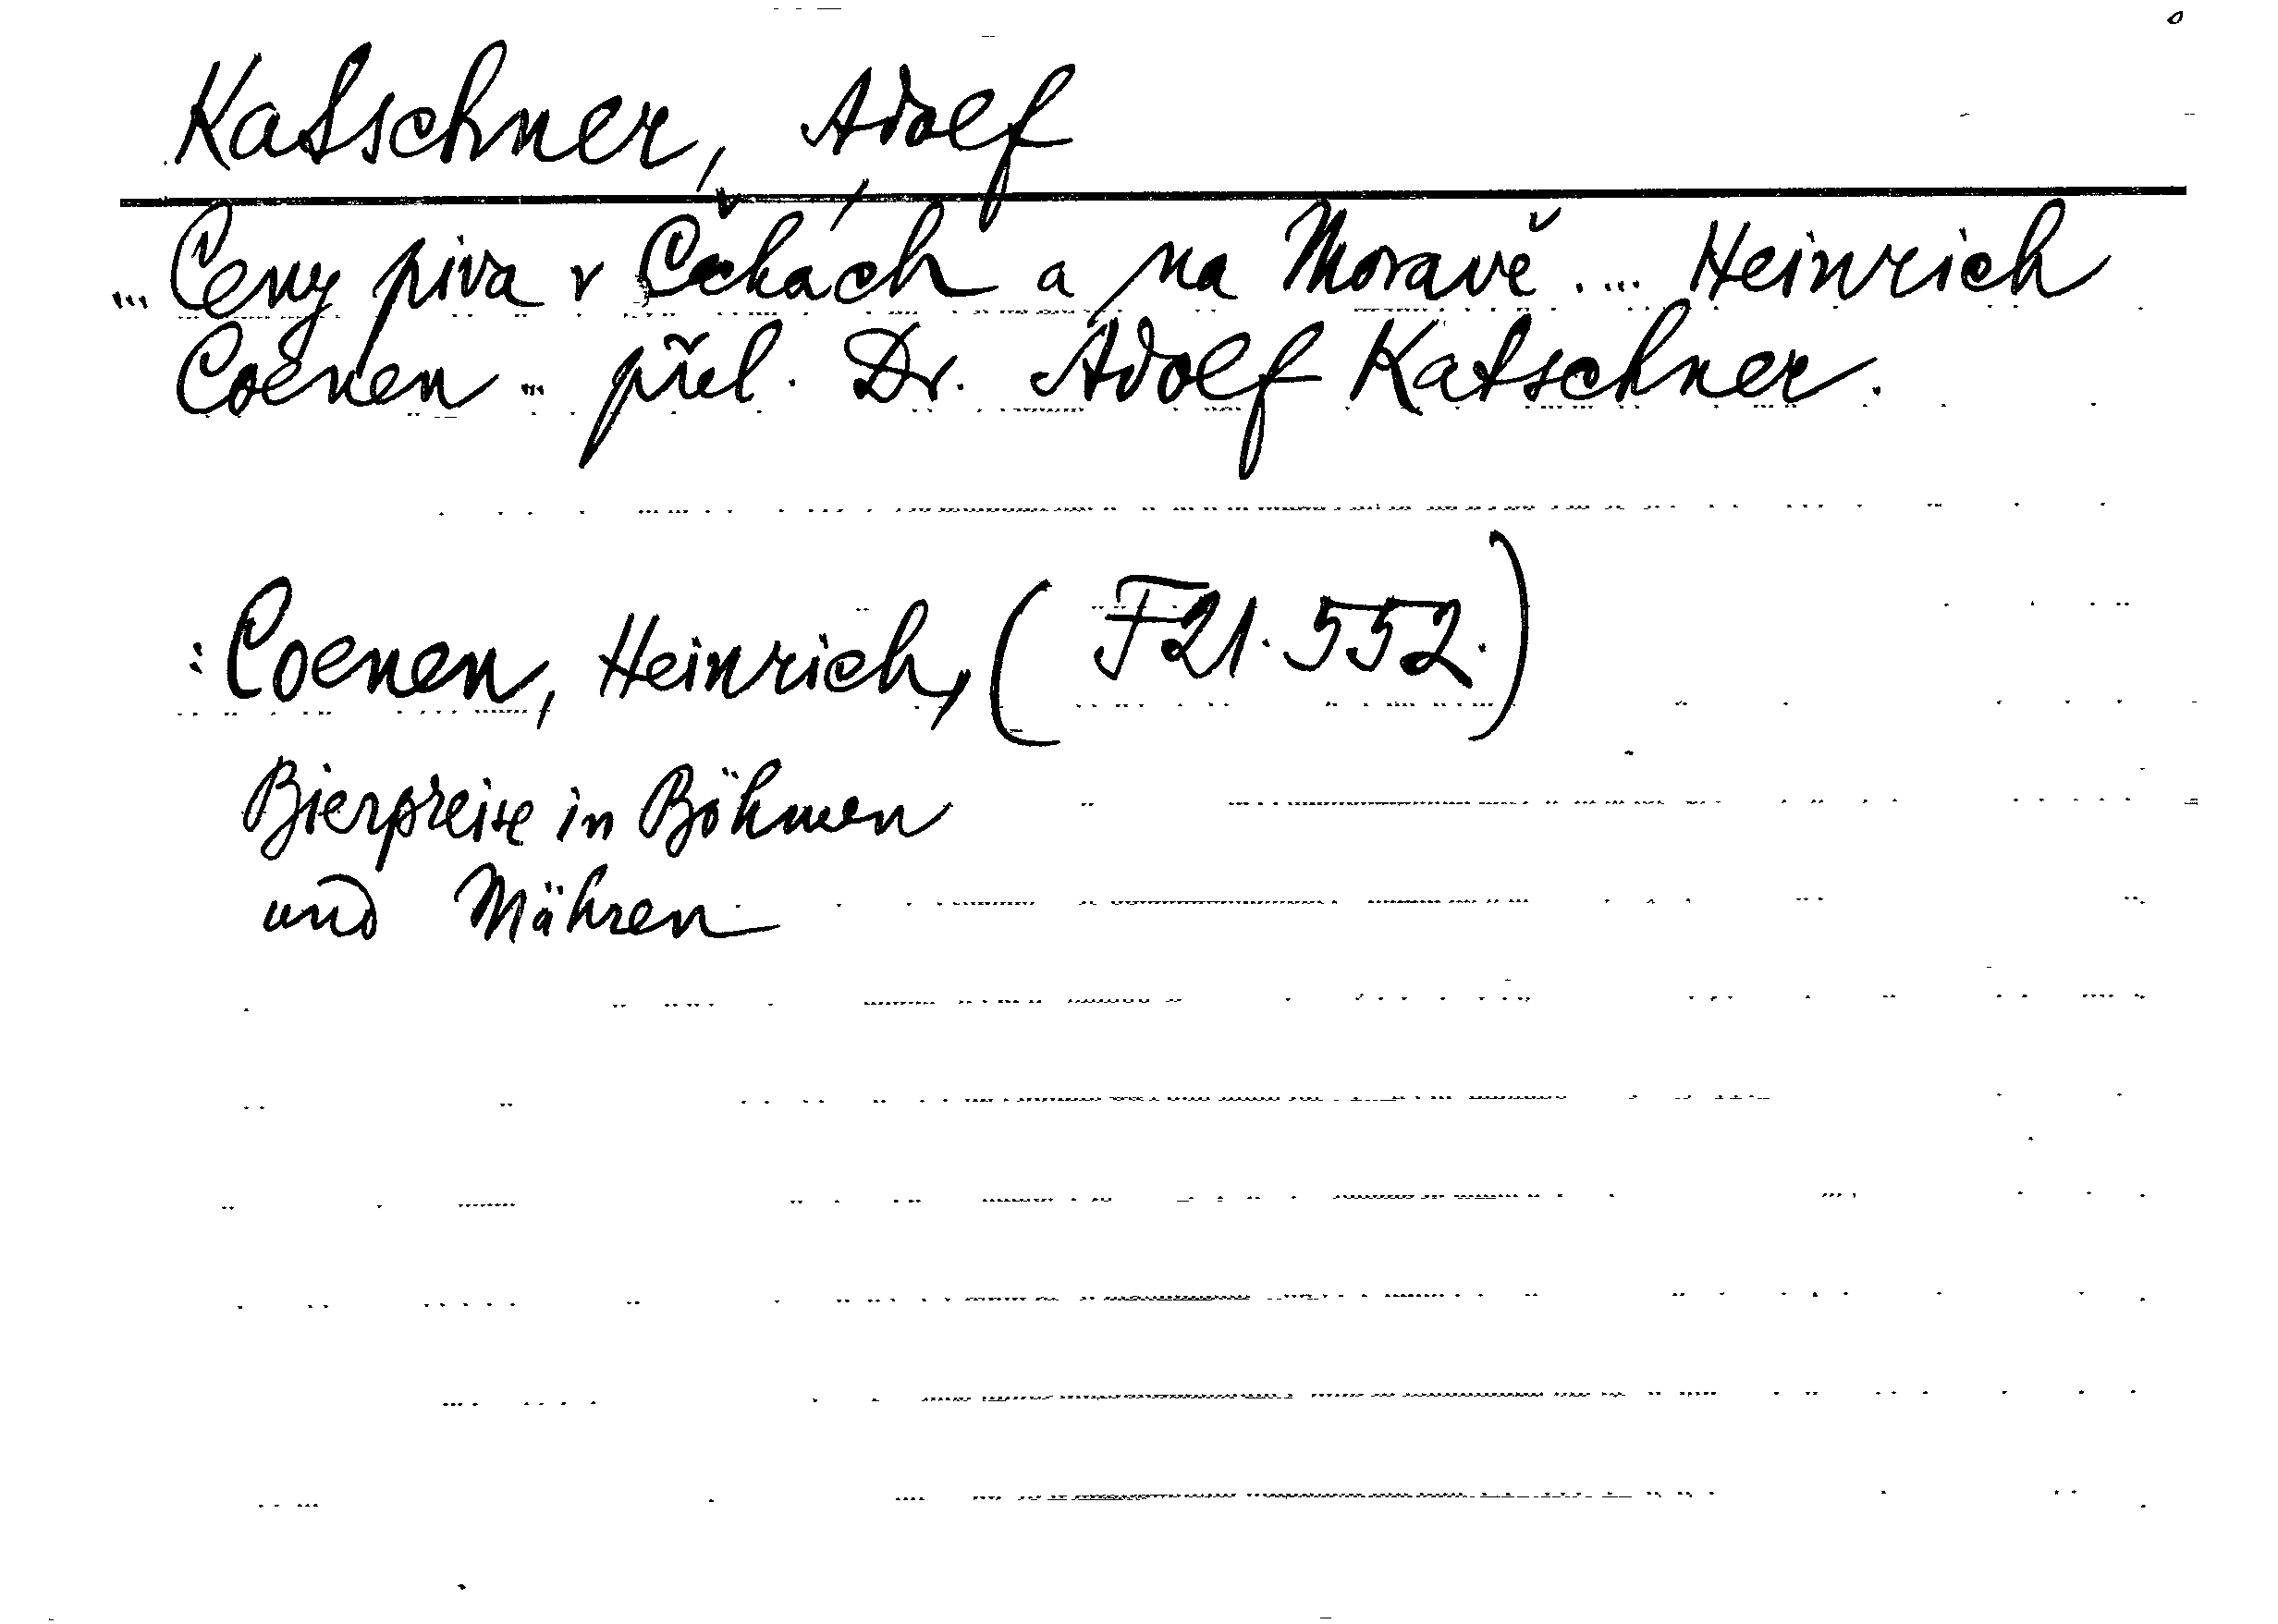 Katschner, Adolf
... Ceny piva v Čechách a na Moravě .... Heinrich
Coenen ... přel. Dr. Adolf Katschner.
: Coenen, Heinrich, (F 21.552.)
Bierpreise in Böhmen
und Mähren